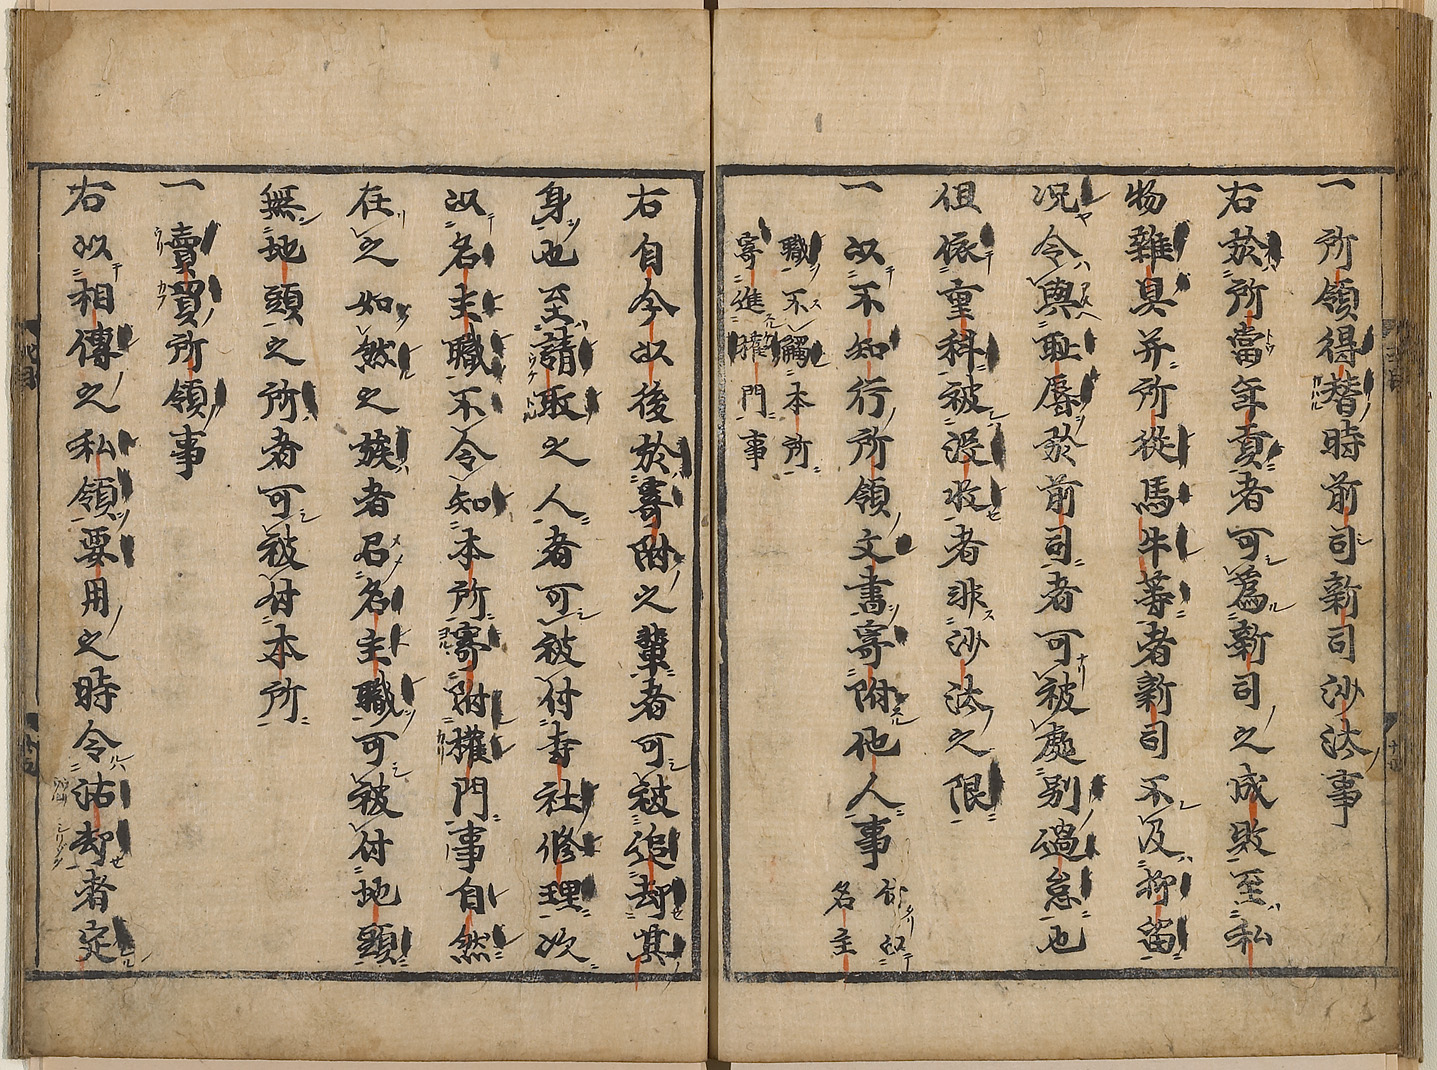 一所領得替時前司新司沙汰事
右於所當年貢者可爲新司之成敗至私
物雜具并所從馬牛等者新司不及抑留
况令與耻辱於前司者可被處別過怠也
但依重科被没收者非沙汰之限
一以不知行所領文書寄附他人事
付以
名主
職不觸本所
寄進權門事
右自今以後於寄附之輩者可被追却其
身也至請取之人者可被付寺社修理次
以名主職不令知本所寄附權門事自然
在之如然之族者召名主職可被付地頭
無地頭之所者可被付本所
一賣買所領事
右以相傳之私領要用之時令沽却者定